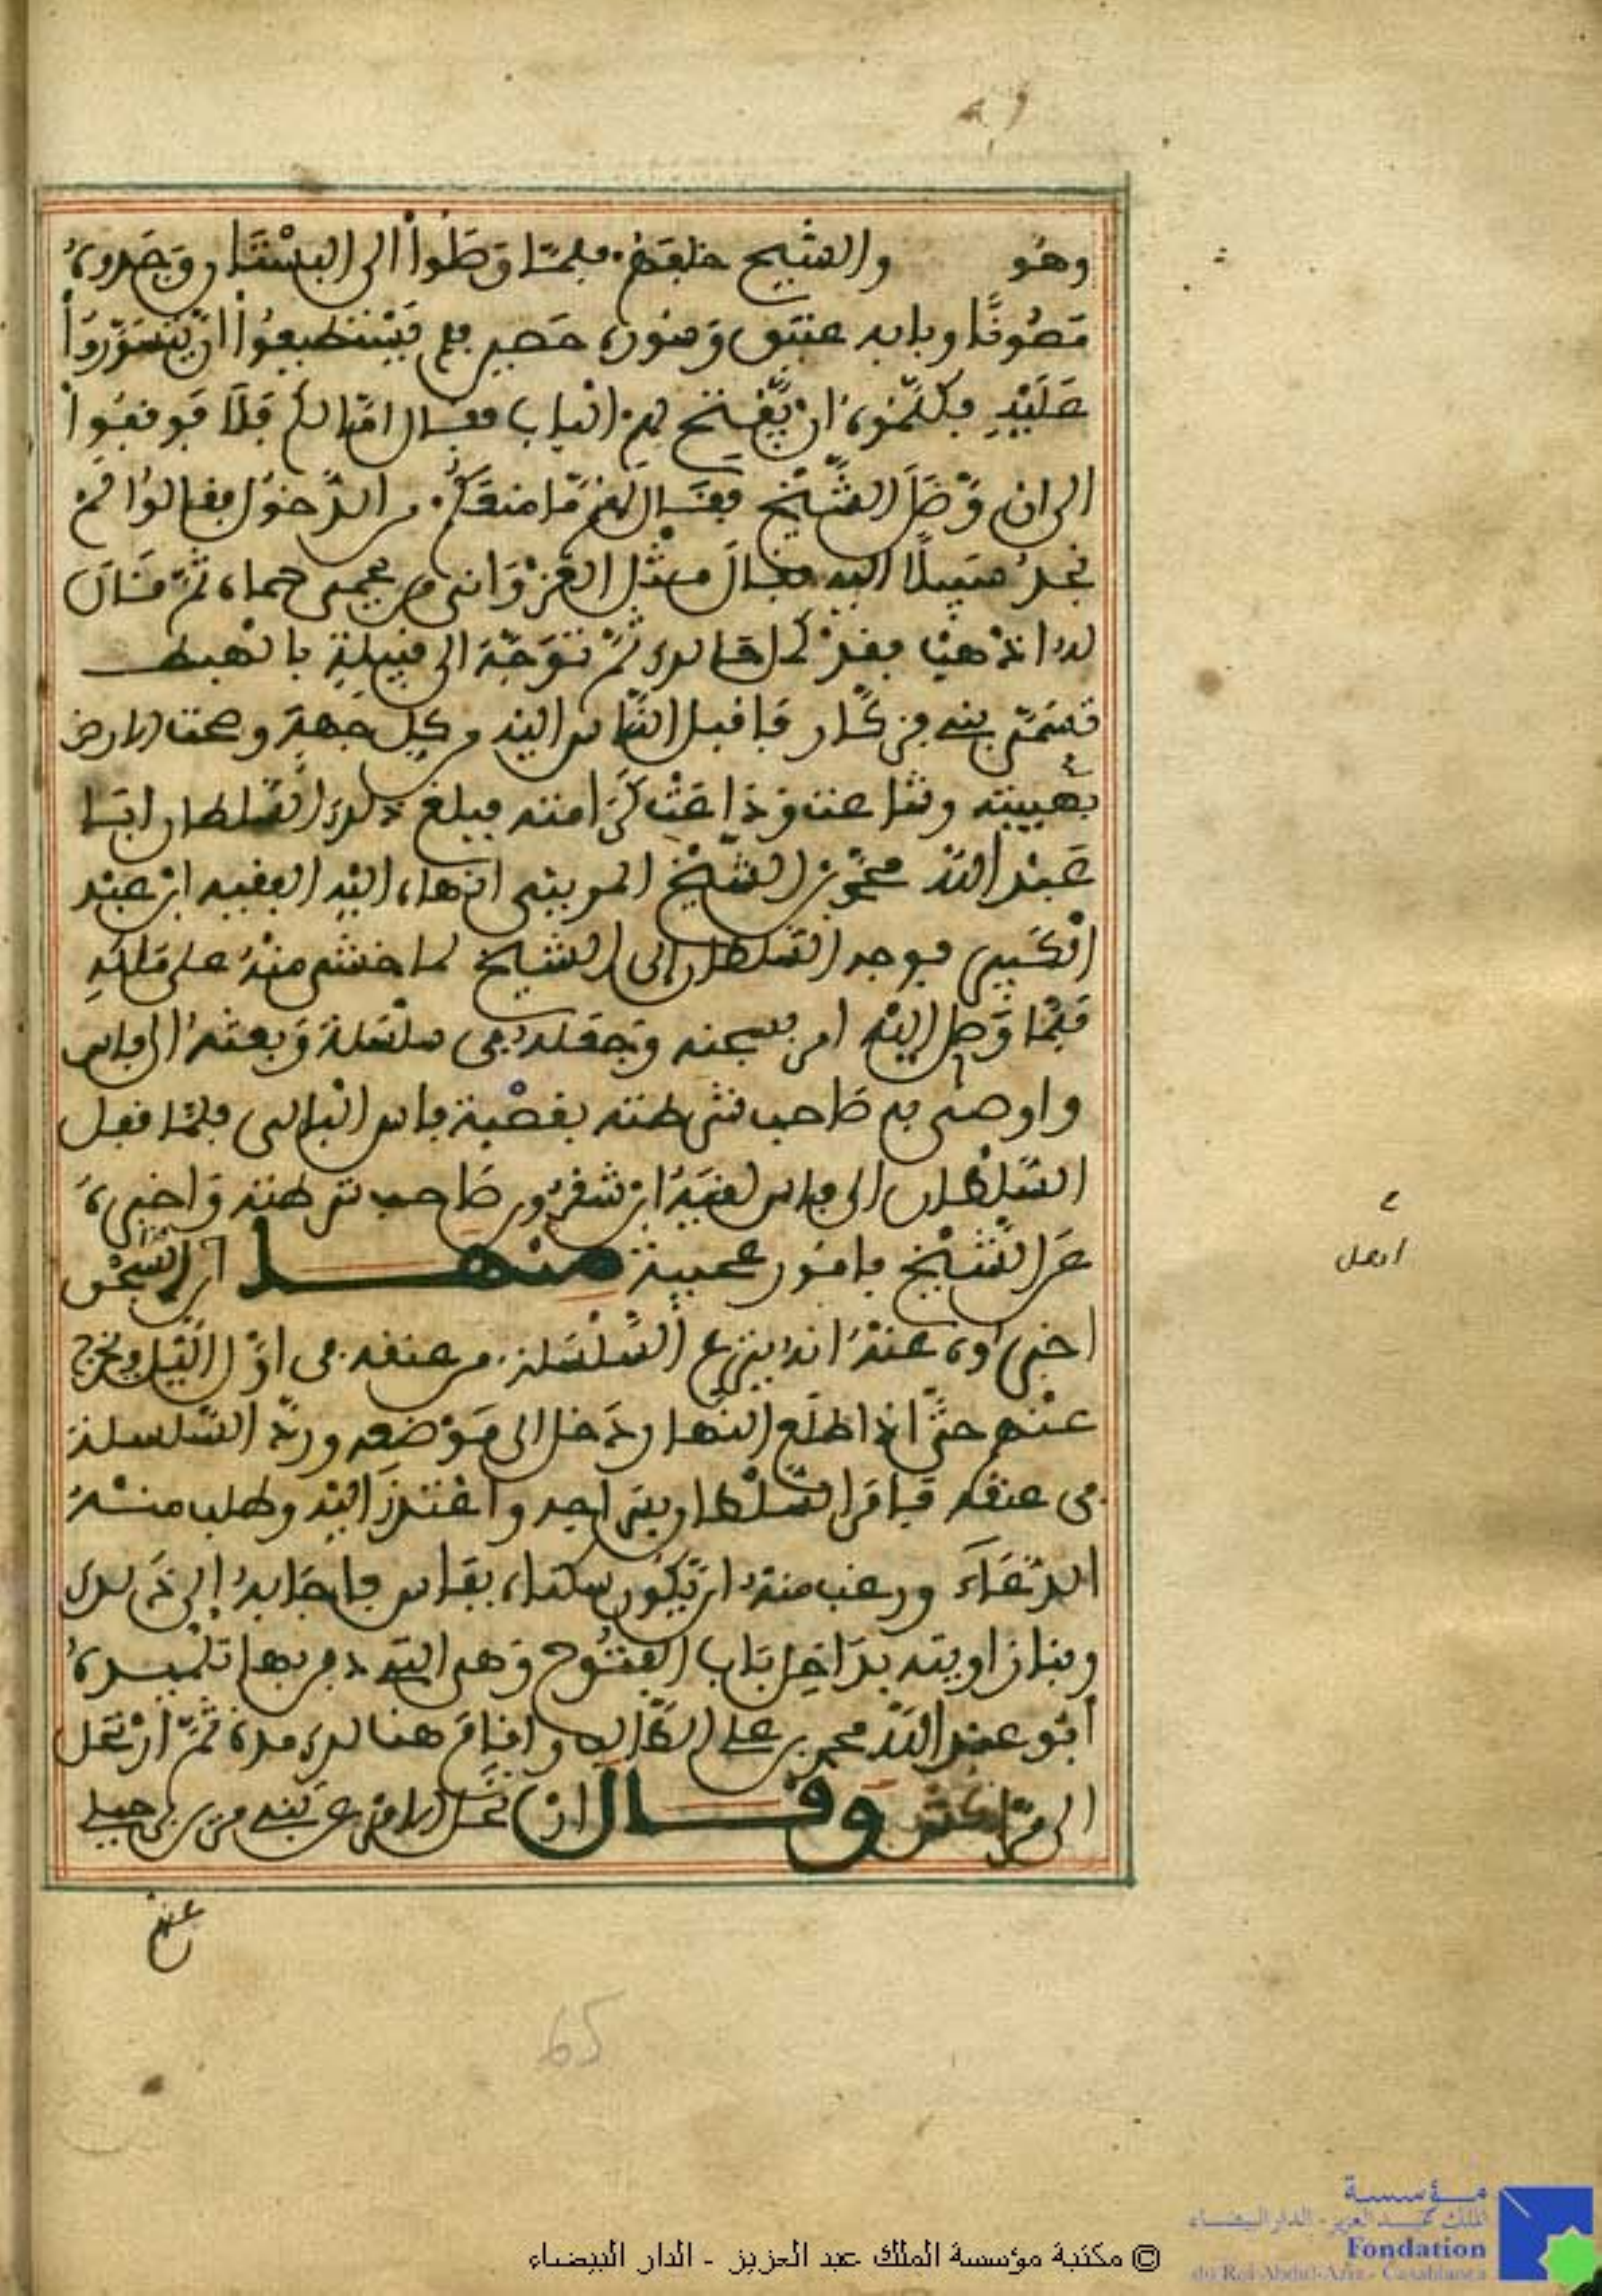 وهو والشيخ خلفهم فلما وصلوا الى البستان وجدوه
مصونا وبابه عتيق وسوره حصين فلم يستطيعوا ان يتسوروا
عليه فكلموه ان يفتح لهم الباب فقال امتالكم فلا فوقفوا
الى ان وصل الشيخ فقال لهم ما منعكم من الدخول فقالوا لم
نجد سبيلا اليه فقال مثل الغزواني من يحمى حماه ثم قال
له اذهب فقد ثم توجه الى قبيلة بالهبط
تسمى بنى فزكار فاقبل الناس اليه من كل جهة وعمت الارض
بهيبته وشاعت وذاعت كرامته فبلغ ذلك السلطان ابا
عبد الله محمد بن الشيخ المريني انهاه اليه الفقيه ابن عبد
الكبير فوجه السلطان الى الشيخ لما خشي منه على ملكه
فلما وصل اليه امر بسجنه وجعله في سلسلة وبعثه الى فاس
واوصى به صاحب شرطته بقصبة فاس البالي فلما قفل
السلطان الى فاس لقيه ابن شقرون صاحب شرطته واخبره
عن الشيخ بامور عجيبة منها ان السجن
اخبروه عنه انه ينزع السلسلة من عنقه في اول الليل ويخرج
عنهم حتى اذا طلع النهار دخل الى موضعه ورد السلسلة
في عنقه فامر السلطان بتسراحه واعتذر اليه وطلب منه
الدعاء ورغب منه ان تكون سكناه بفاس فاجابه الى ذلك
وبنا زاويته بداخل باب الفتوح وهي التي دفن بها تلميذه
أبو عبد الله محمد بن علي الطالب واقام هنالك مدة ثم ارتحل
الى مراكش وقال ان نحل الامر عن بنى مرين جبلي
عنهم
اهل
65
© مكتبة مؤسسة الملك عبد العزيز - الدار البيضاء
مؤسسة
الملك عبد العزيز - الدار البيضاء
Fondation
du Roi Abdul-Aziz - Casablanca